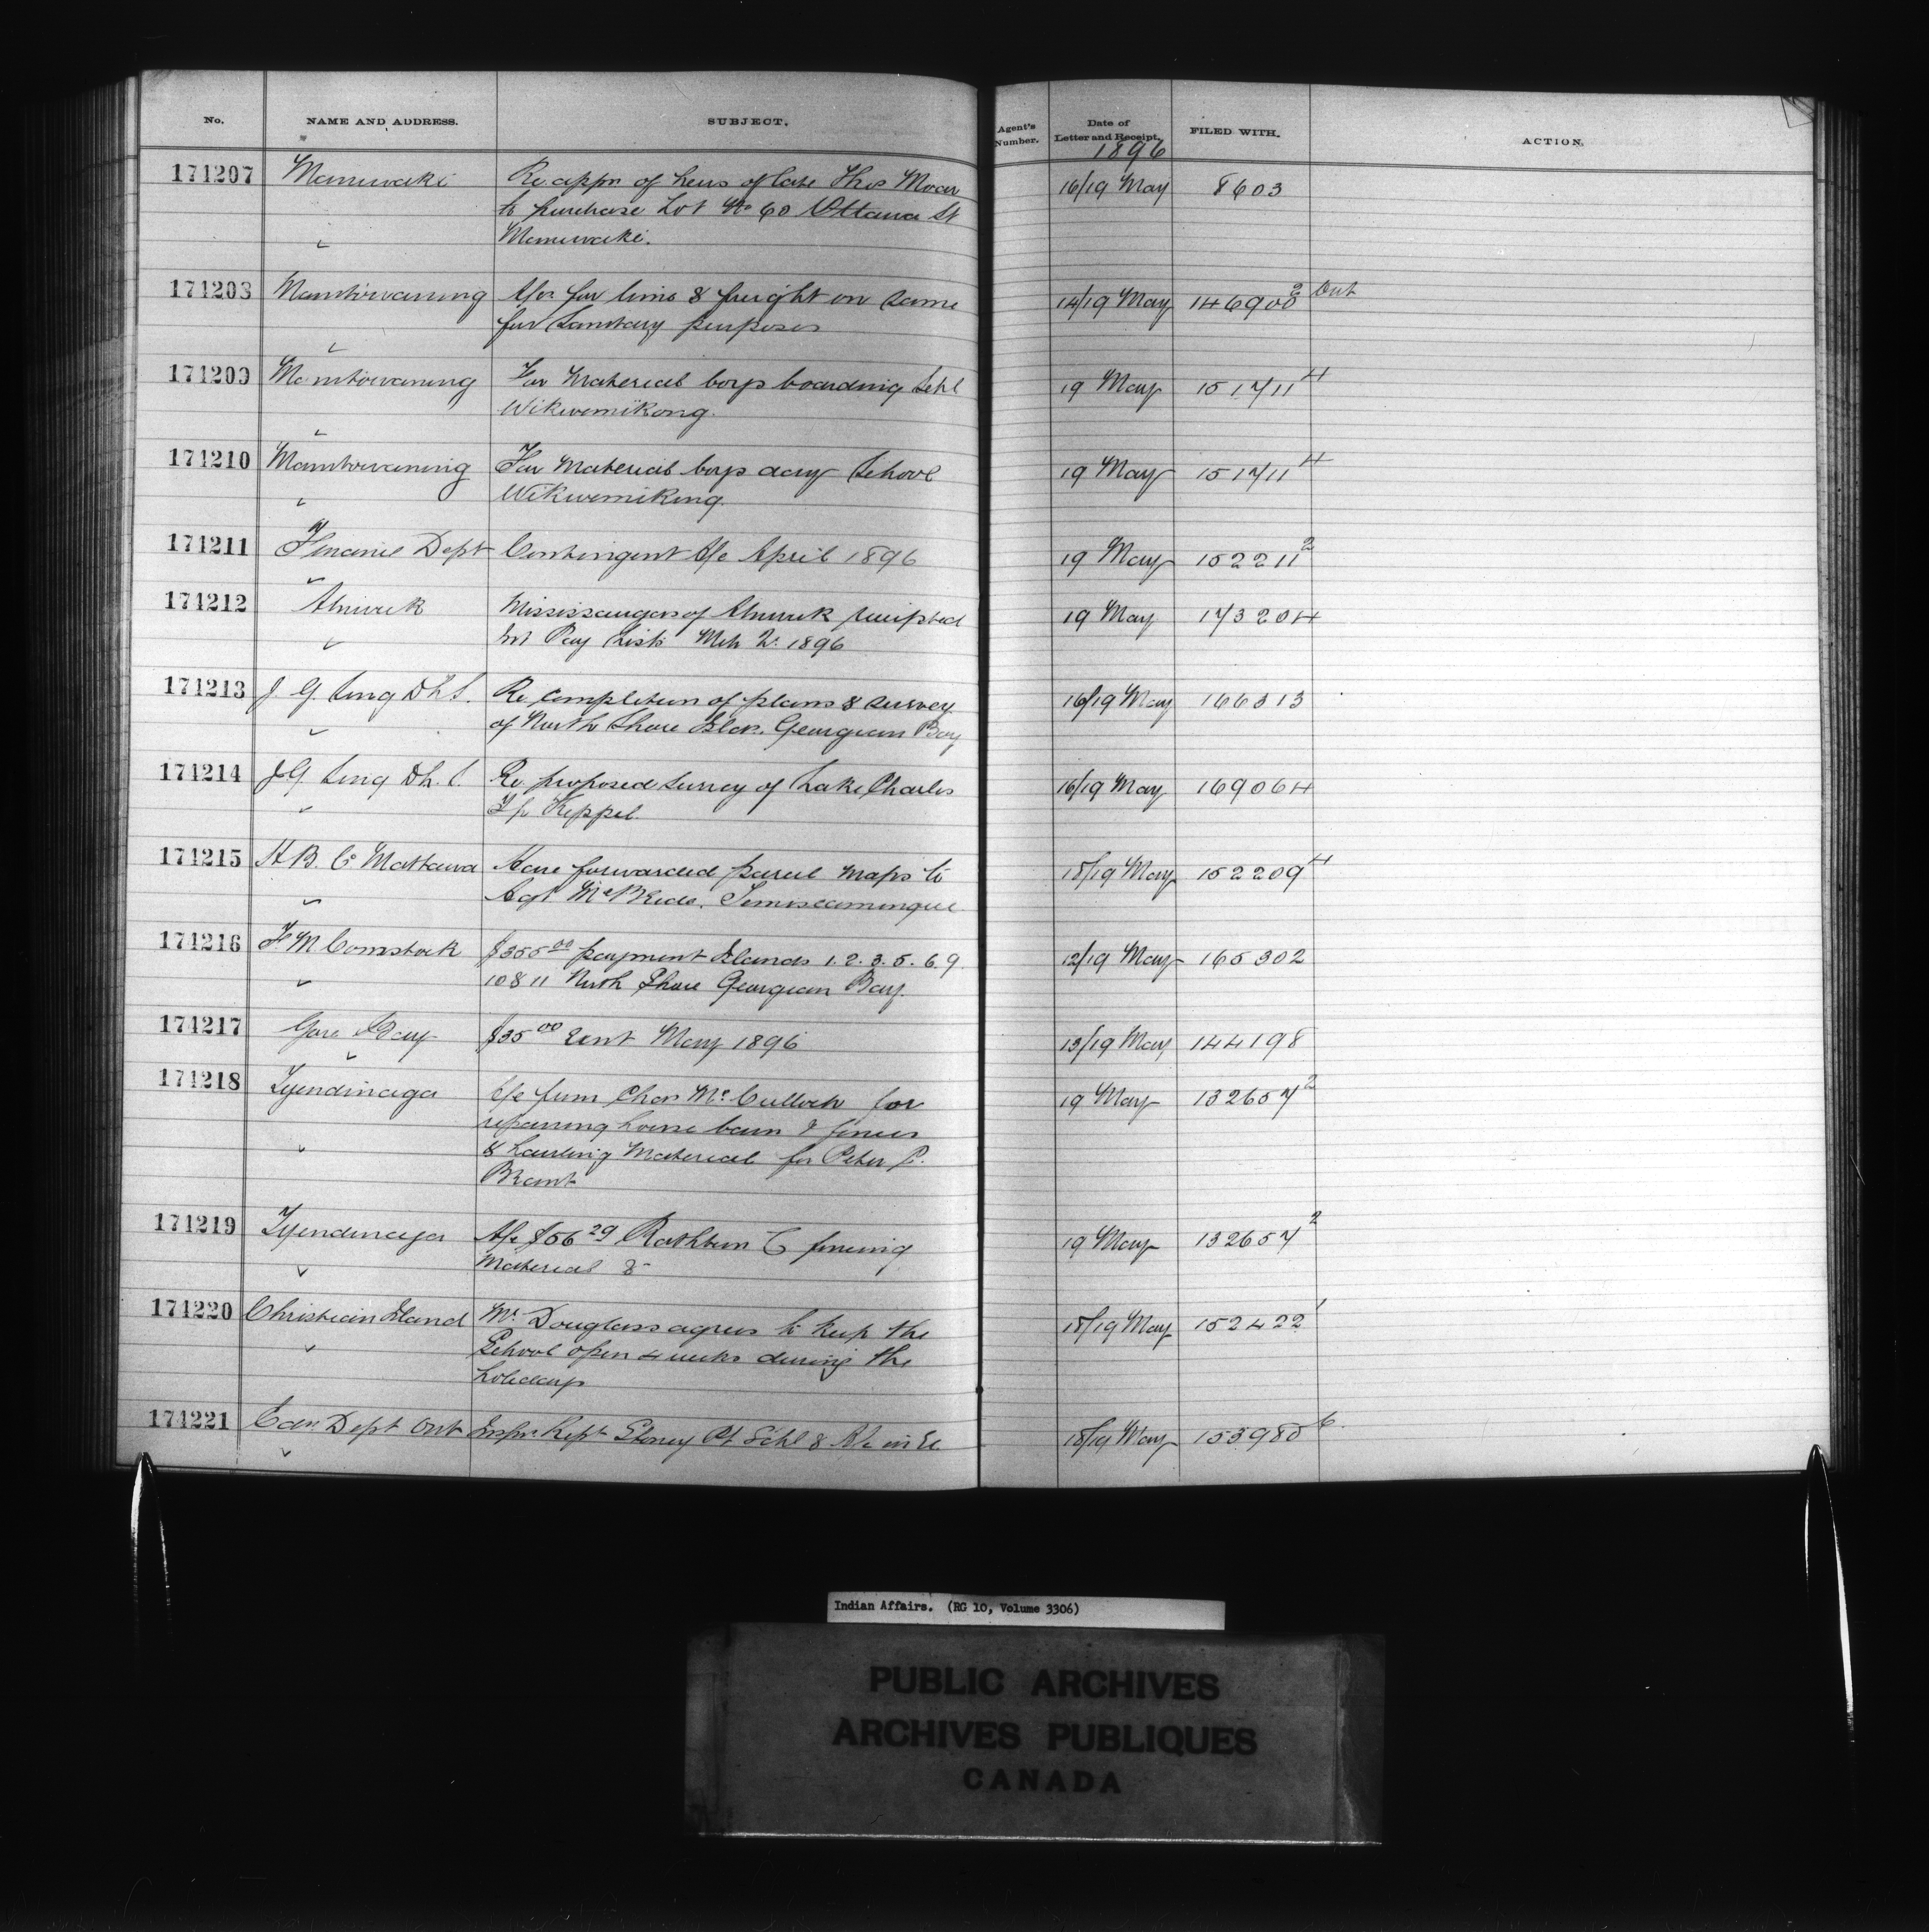 No. NAME AND ADDRESS. SUBJECT. Agent's Number. Date of Letter and Receipt. FILED WITH. ACTION.
1896
174207 Maniwaki Re appn of heirs of late Thos Moar 16/19 May 8603
to purchase Lot No 60 Ottawa St
Maniwaki.
174208 Manitowaning A/cs for lime & freight on same 14/19 May 146900 2 Out
for sanitary purposes
174209 Manitowaning For material boys boarding Schl 19 May 151711 4
Wikwemikong.
174210 Manitowaning For material boys day School 19 May 151711 4
Wikwemikong.
174211 Finance Dept Contingent A/c April 1896 19 May 152211 2
174212 Alnwick Mississaugas of Alnwick receipted 19 May 173204
Int Pay Lists Mch 1896
174213 J. G. Sing D.L.S. Re completion of plans & survey 16/19 May 166313
of North Shore Georgian Bay
174214 J. G. Sing D.L.S. Re proposed survey of Lake Charles 16/19 May 169064
Tp Keppel.
174215 H. B. Co Mattawa Have forwarded parcel maps to 18/19 May 152209 4
Agt McBride, Temiscamingue
174216 F. M. Comstock $355 00 payment Islands 1. 2. 3. 5. 6. 9 12/19 May 165302
10 & 11 North Shore Georgian Bay.
174217 Gore Bay $35 00 rent May 1896 13/19 May 144198
174218 Tyendinaga A/c from Chas McCulloch for 19 May 132657 2
repairing house barn & fences
& hauling material for Peter P.
Brant
174219 Tyendinaga A/c $56 29 Rathbun C fencing 19 May 132657 2
material &
174220 Christian Island Mr Douglass agrees to keep the 18/19 May 152422 1
School open 4 weeks during the
holidays
174221 Edn. Dept Ont Inspr. Rept Stoney Pt Schl & A/c in 18/19 May 153980 6
Indian Affairs. (RG 10, Volume 3306)
PUBLIC ARCHIVES
ARCHIVES PUBLIQUES
CANADA